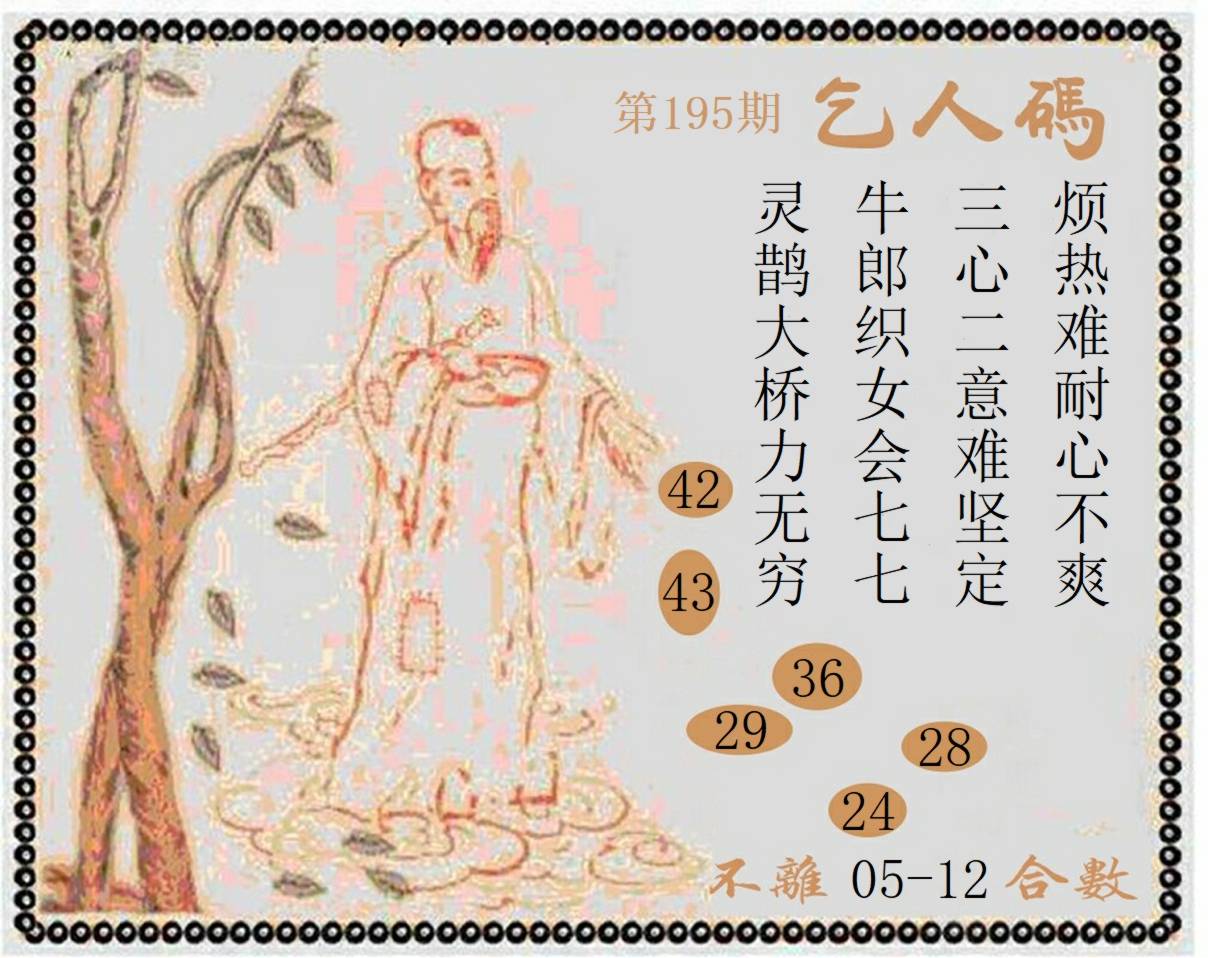 第195期 乞人碼
烦热难耐心不爽
三心二意难坚定
牛郎织女会七七
灵鹊大桥力无穷
42
43
36
29
28
24
不離 05-12 合數